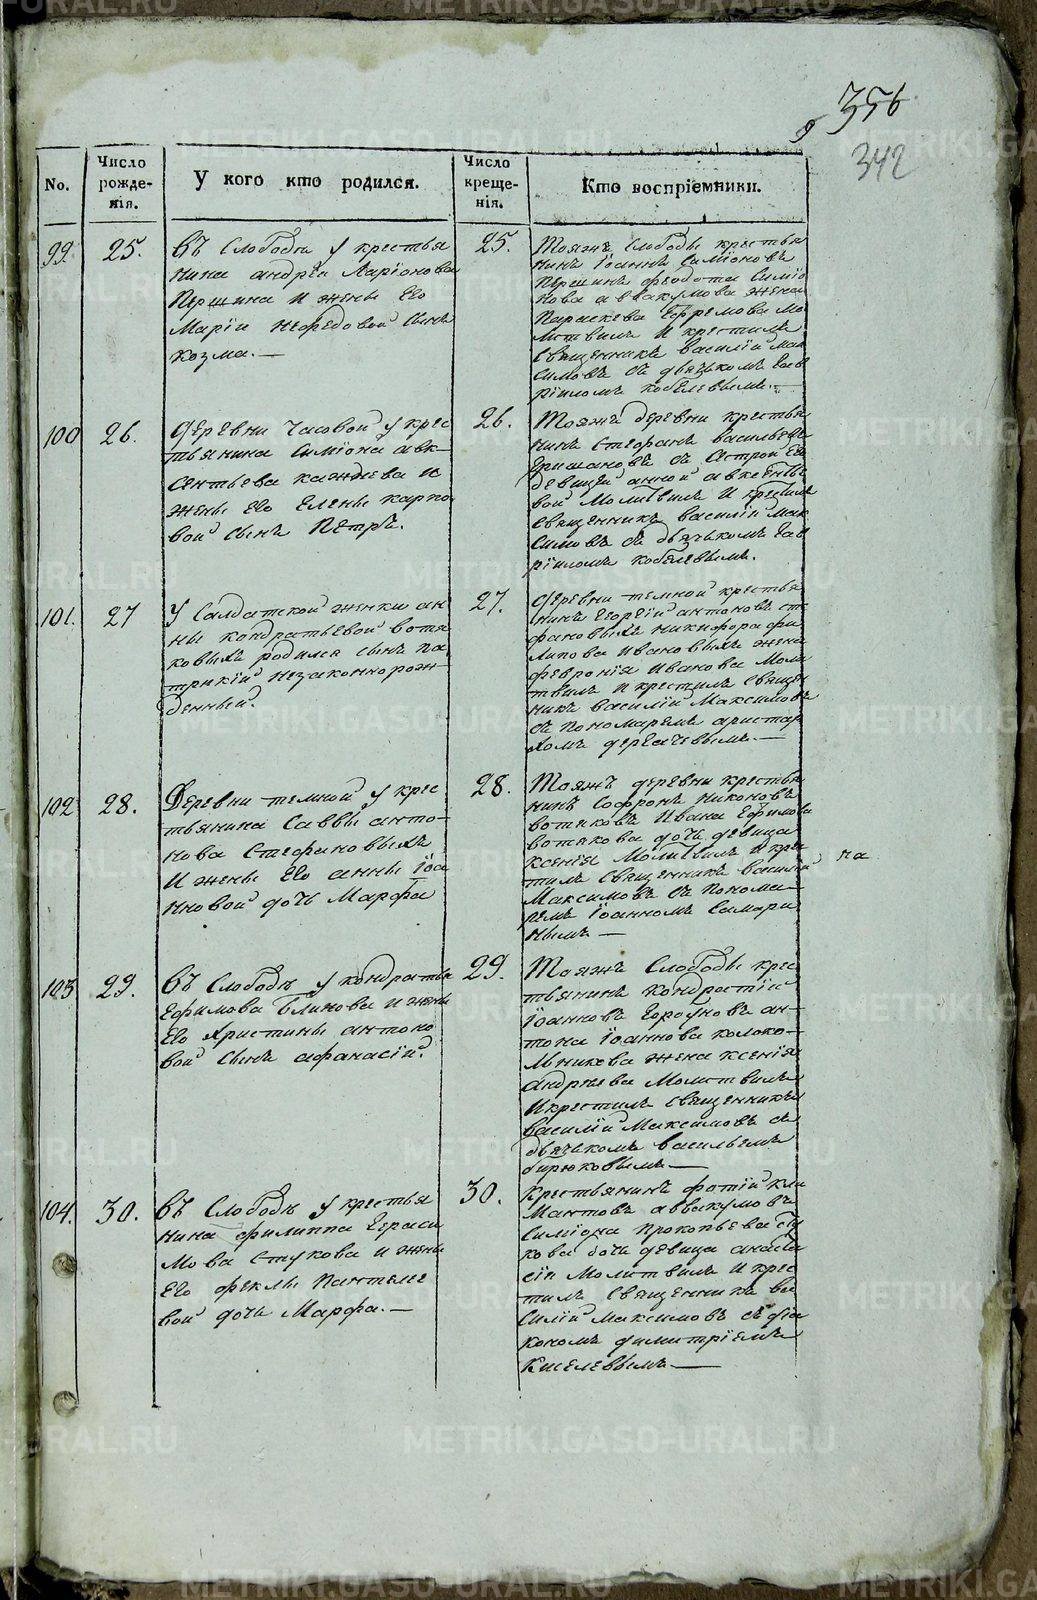 356
342
No.
Число рожде-нія.
У кого кто родился.
Число креще-нія.
Кто воспріемники.
99.
25.
Въ Слободѣ у крестья
нина андрѣа Ларіонова
Першина и жены Его
Маріи нефедовой сынъ
козма. —
25.
Тояжъ слободы крестья
нинъ Іоаннъ Симіоновъ
Першинъ федота Симіо
нова аввакумова жена
Параскева Ефремова мо
литвилъ и крестилъ
Священникъ василій мак
симовъ съ дьячькомъ гав
ріиломъ кобелевымъ. —
100
26.
Деревни часовой у крес
тьянина Симіона авк-
сентьева и
жены Его Елены карпо
вой сынъ Петръ.
26.
Тояжъ деревни крестья
нинъ Стефанъ васильевъ
съ сестрой Его
девицей анной авксентье
вой Молитвилъ и крестилъ
Священникъ василій мак
симовъ съ дьячькомъ гав
ріиломъ кобелевымъ.
101.
27
У Салдатской женки ан
ны кондратьевой вотя
ковыхъ родился сынъ па
трикій незаконнорож
денный.
27.
Деревни темной крестья
нинъ Егоргій антоновъ сте
фановыхъ никифора фи
липова Ивановыхъ жена
февронія Иванова Моли
твилъ и крестилъ Священ
никъ василій Максимовъ
съ пономаремъ аристар
хомъ дерябевымъ. —
102
28.
Деревни темной у крес
тьянина Саввы анто-
нова Стефановыхъ
И жены Его анны Іоа
нновой дочь Марфа
28.
Тояжъ деревни крестья
нинъ Софронъ никоновъ
вотяковъ Ивана Ефимова
вотякова дочь девица
ксенія Молитвилъ и кре
тилъ Священникъ василій
Максимовъ съ понома-
ремъ Іоанномъ Самари
нымъ —
на
103
29.
Въ Слободѣ у кондратья
Ефимова Блинова и жены
Его Христины антоно
вой сынъ афанасій.
29.
Тояжъ Слободы крес
тьянинъ кондратій
Іоанновъ ан-
тона Іоаннова колоко-
льникова жена ксенія
андрѣева Молитвилъ
И крестилъ священникъ
василій Максимовъ съ
дьячькомъ васильемъ
бирюковымъ —
104.
30.
Въ Слободѣ у крестья
нина филиппа Гераси
мова Стукова и жены
Его феклы Пантелее
вой дочь Марфа. —
30.
Крестьянинъ фотій кли
мантовъ аввакумовъ
Симіона прокопьева сту
кова дочь девица анаста
сія Молитвилъ и крес
тилъ Священникъ ва
силій Максимовъ съ діа
кономъ димитріемъ
Киселевымъ —